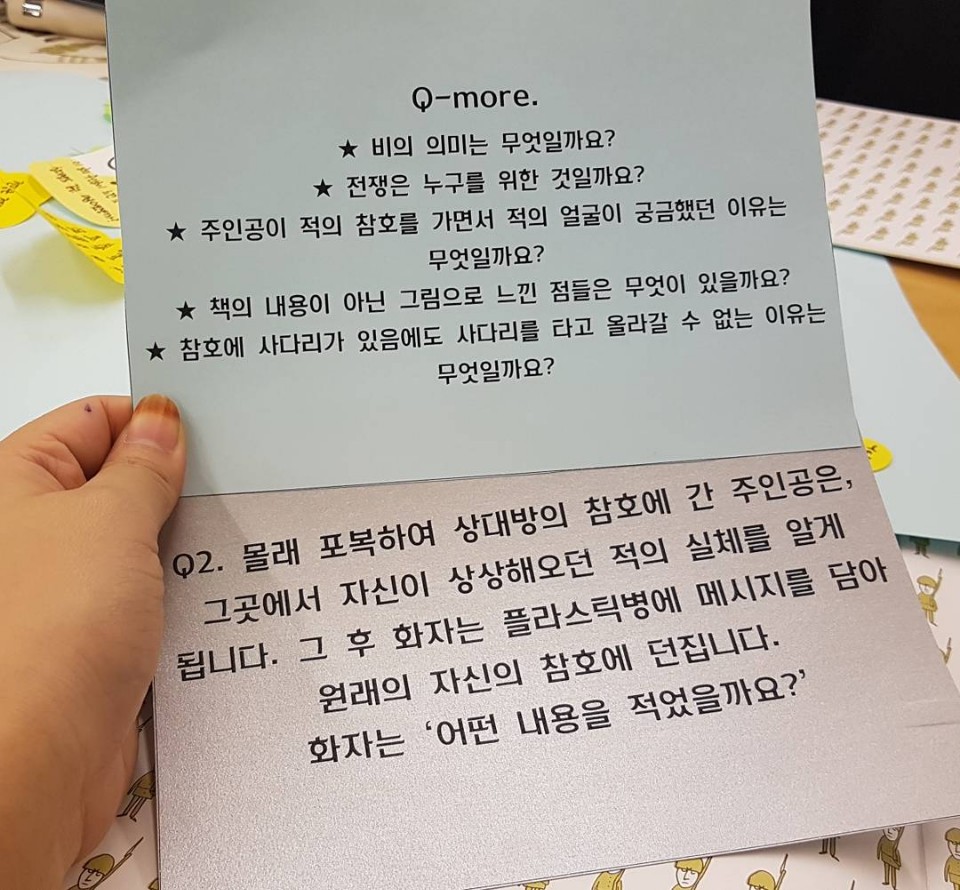 Q-more.
★ 비의 의미는 무엇일까요?
★ 전쟁은 누구를 위한 것일까요?
★ 주인공이 적의 참호를 가면서 적의 얼굴이 궁금했던 이유는
무엇일까요?
★ 책의 내용이 아닌 그림으로 느낀 점들은 무엇이 있을까요?
★ 참호에 사다리가 있음에도 사다리를 타고 올라갈 수 없는 이유는
무엇일까요?
Q2. 몰래 포복하여 상대방의 참호에 간 주인공은,
그곳에서 자신이 상상해오던 적의 실체를 알게
됩니다. 그 후 화자는 플라스틱병에 메시지를 담아
원래의 자신의 참호에 던집니다.
화자는 '어떤 내용을 적었을까요?'